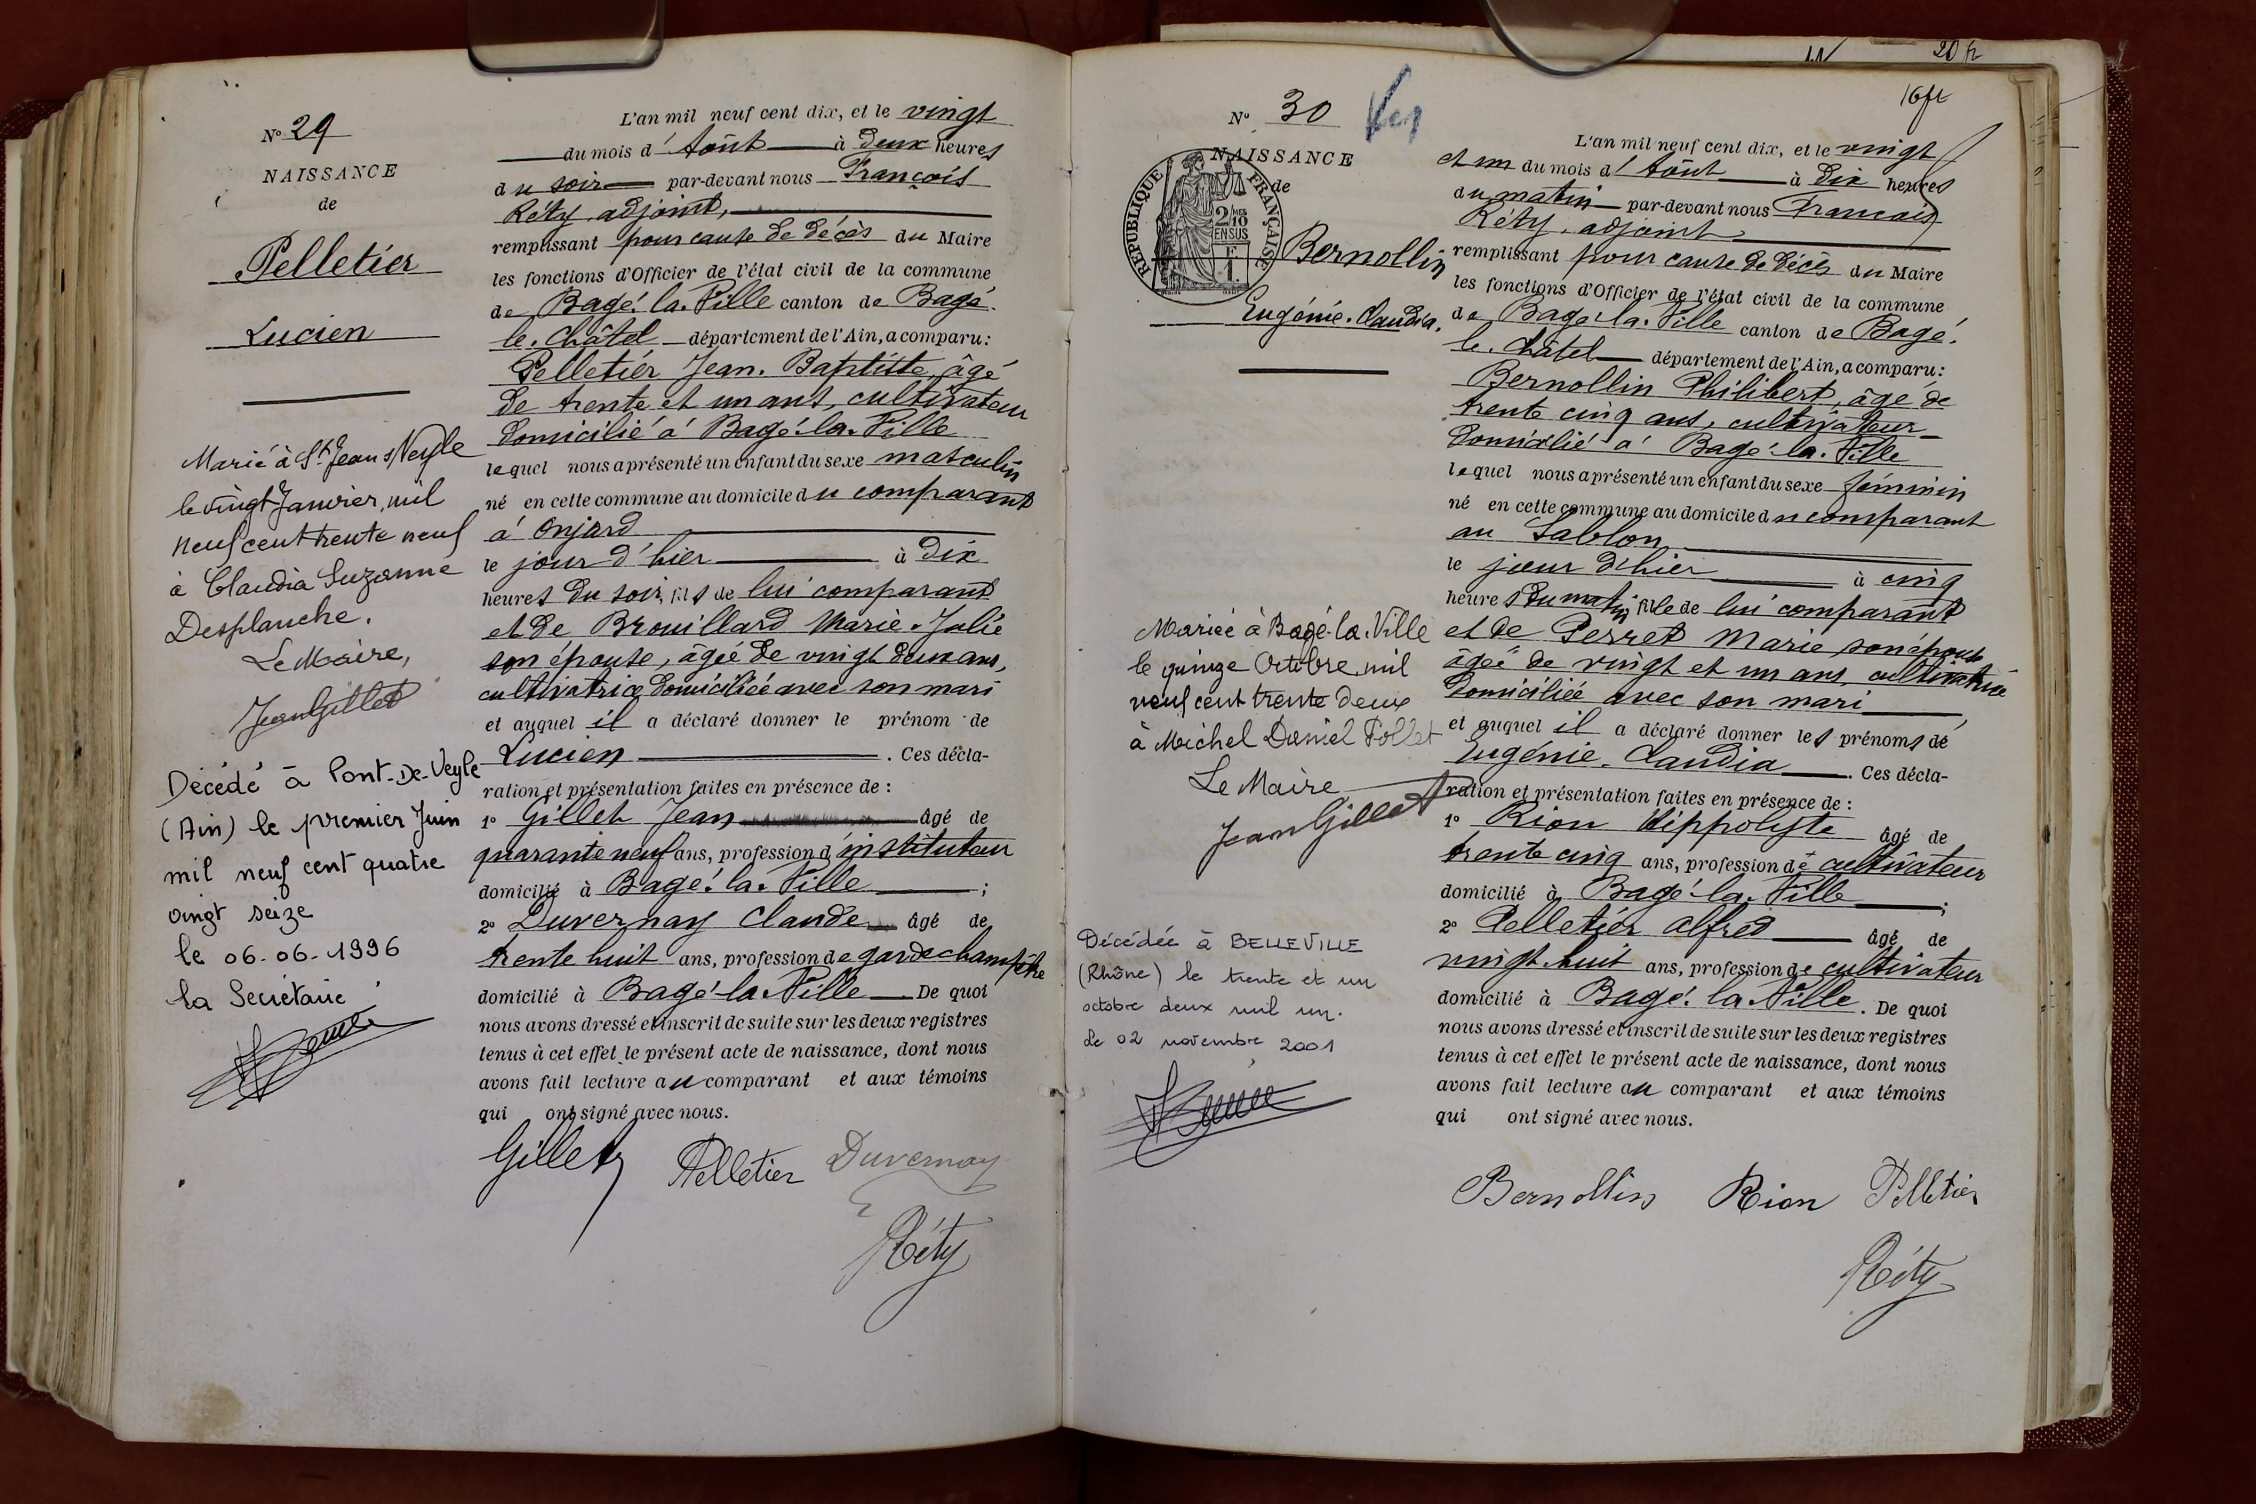 N° 29
NAISSANCE
de
Pelletier
Lucien
Marié à St Jean s/Veyle
le vingt Janvier, mil
neuf cent trente neuf
à Claudia Suzanne
Desplanche.
Le Maire,
Jean Gillet
Décédé à Pont-De-Veyle
(Ain) le premier Juin
mil neuf cent quatre
vingt seize
le 06-06-1996
la Secrétaire
L'an mil neuf cent dix, et le vingt
du mois d'Août à deux heures
du soir par-devant nous François
Réty, adjoint,
remplissant pour cause de décès du Maire
les fonctions d'Officier de l'état civil de la commune
de Bagé-la-Ville canton de Bagé-
le-Châtel département de l'Ain, a comparu:
Pelletier Jean-Baptiste, âgé
de trente et un ans, cultivateur
domicilié à Bagé-la-Ville
lequel nous a présenté un enfant du sexe masculin
né en cette commune au domicile du comparant
à Onjard
le jour d'hier à dix
heures du soir, fils de lui comparant
et de Brouillard Marie-Julie
son épouse, âgée de vingt deux ans,
cultivatrice domiciliée avec son mari
et auquel il a déclaré donner le prénom de
Lucien. Ces décla-
ration et présentation faites en présence de :
1° Gillet Jean âgé de
quarante neuf ans, profession d'instituteur
domicilié à Bagé-la-Ville ;
2° Duvernay Claude âgé de
trente huit ans, profession de garde champêtre
domicilié à Bagé-la-Ville De quoi
nous avons dressé et inscrit de suite sur les deux registres
tenus à cet effet le présent acte de naissance, dont nous
avons fait lecture au comparant et aux témoins
qui ont signé avec nous.
Gillet Pelletier Duvernay
Réty
20 fr
16 fr
N° 30
NAISSANCE
de
RÉPUBLIQUE FRANÇAISE
2/10
EN SUS
F
1
Bernollin
Eugénie-Claudia.
Mariée à Bagé-la-Ville
le quinze Octobre, mil
neuf cent trente deux
à Michel Daniel Follet
Le Maire
Jean Gillet
Décédée à BELLEVILLE
(Rhône) le trente et un
octobre deux mil un.
Le 02 novembre 2001
L'an mil neuf cent dix, et le vingt
et un du mois d'Août à dix heures
du matin par-devant nous François
Réty, adjoint
remplissant pour cause de décès du Maire
les fonctions d'Officier de l'état civil de la commune
de Bagé-la-Ville canton de Bagé-
le-Châtel département de l'Ain, a comparu:
Bernollin Philibert, âgé de
trente cinq ans, cultivateur
domicilié à Bagé-la-Ville
lequel nous a présenté un enfant du sexe féminin
né en cette commune au domicile du comparant
au Sablon
le jour d'hier à cinq
heures du matin, fille de lui comparant
et de Perret Marie son épouse
âgée de vingt et un ans, cultivatrice
domiciliée avec son mari,
et auquel il a déclaré donner les prénoms de
Eugénie-Claudia. Ces décla-
ration et présentation faites en présence de :
1° Rion Hippolyte âgé de
trente cinq ans, profession de cultivateur
domicilié à Bagé-la-Ville ;
2° Pelletier Alfred âgé de
vingt-huit ans, profession de cultivateur
domicilié à Bagé-la-Ville. De quoi
nous avons dressé et inscrit de suite sur les deux registres
tenus à cet effet le présent acte de naissance, dont nous
avons fait lecture au comparant et aux témoins
qui ont signé avec nous.
Bernollin Rion Pelletier
Réty